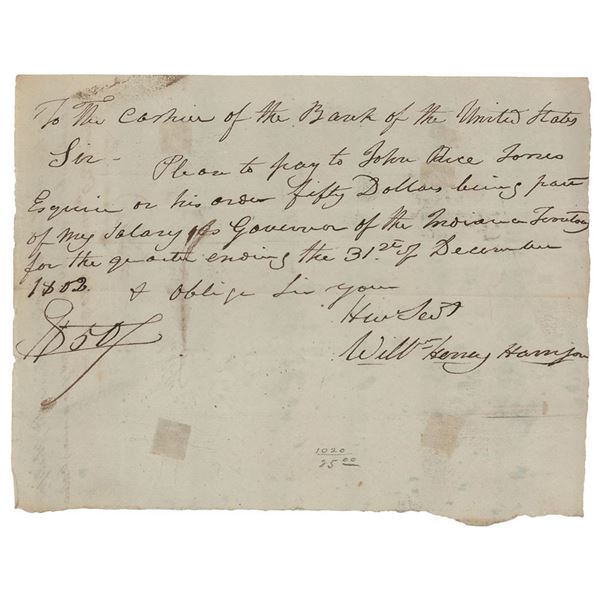 To The Cashier of the Bank of the United States
Sir - Please to pay to John Rice Jones
Esquire or his order fifty Dollars being part
of my Salary as Governor of the Indiana Territory
for the quarter ending the 31st of December
1802 & oblige Sir your
Hue Servt
Willm Henry Harrison
$50/
1020
25 00